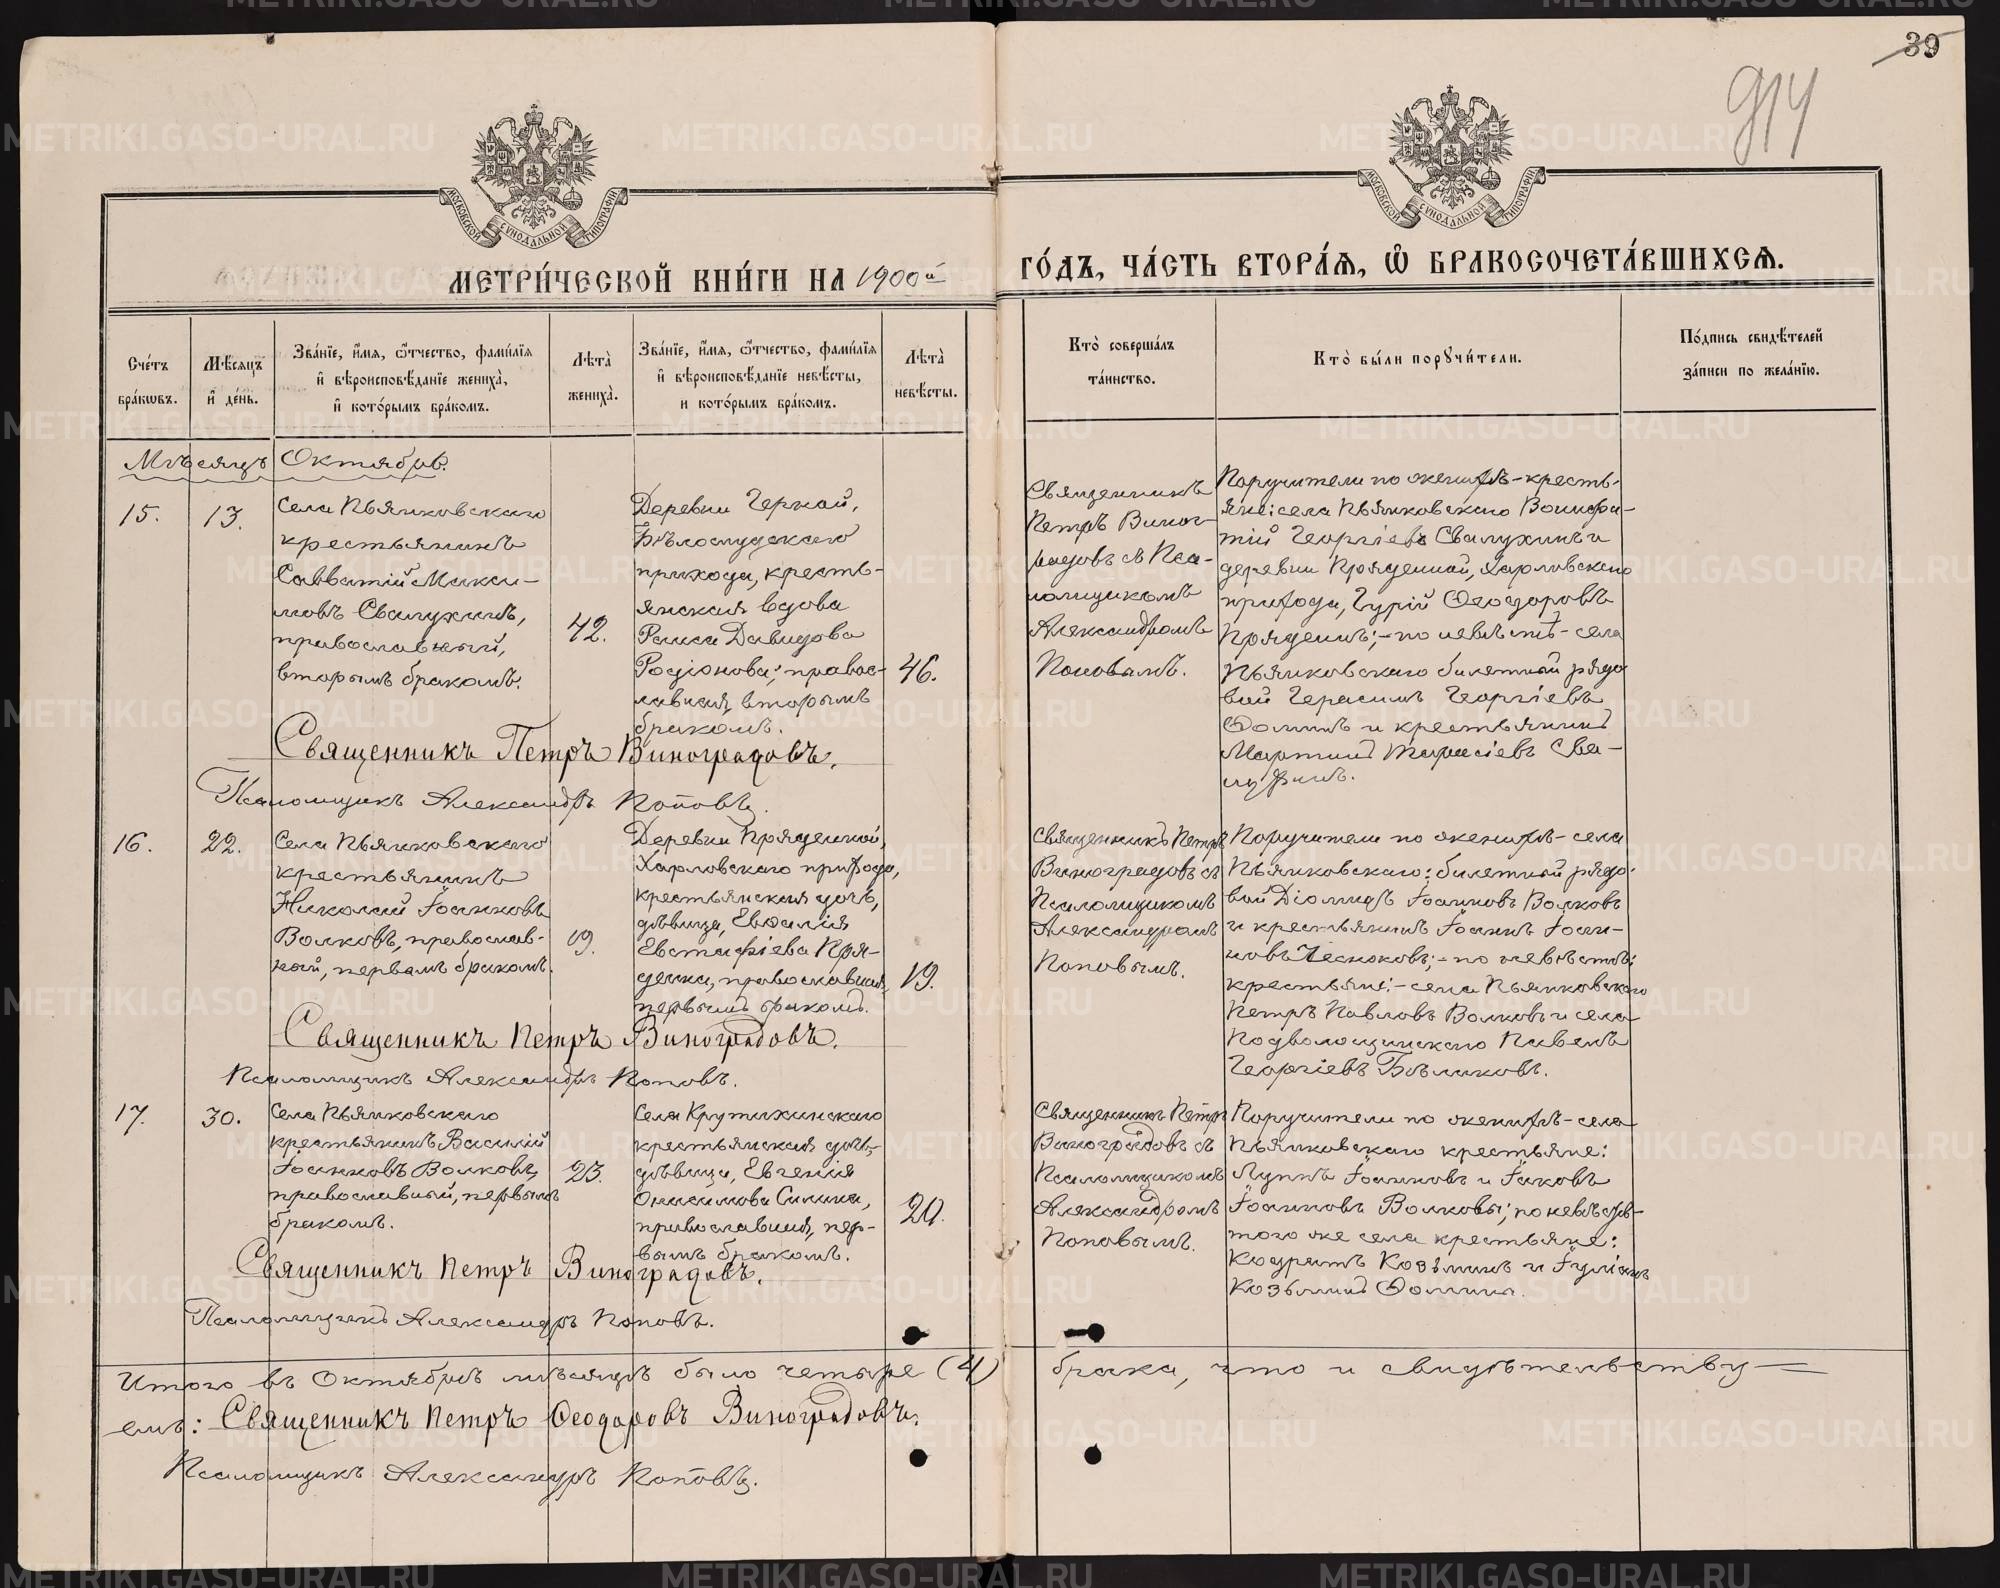 39
914
МОСКОВСКОЙ СѴНОДАЛЬНОЙ ТИПОГРАФІИ
МОСКОВСКОЙ СѴНОДАЛЬНОЙ ТИПОГРАФІИ
МЕТРИ́ЧЕСКОЙ КНИ́ГИ НА 1900й
ГО́ДЪ, ЧА́СТЬ ВТОРА́Я, Ѽ БРАКОСОЧЕТА́ВШИХСЯ.
Сче́тъ
бра́кѡвъ.
Мѣ́сяцъ
и҆ де́нь.
Зва́нїе, и҆́мя, ѻ҆́тчество, фами́лїя
и҆ вѣроисповѣ́данїе жениха̀,
и҆ кото́рымъ бра́комъ.
Лѣ́та̀
жениха̀.
Зва́нїе, и҆́мя, ѻ҆́тчество, фами́лїя
и҆ вѣроисповѣ́данїе невѣ́сты,
и кото́рымъ бра́комъ.
Лѣ́та̀
невѣ́сты.
Кто̀ соверша́лъ
та́инство.
Кто̀ бы́ли порꙋчи́тели.
По́дпись свидѣ́телей
за́писи по жела́нїю.
Мѣсяцъ Октябрь.
15.
13.
Села Пьянковскаго
крестьянинъ
Савватій Макси-
мовъ Свалухинъ,
православный,
вторымъ бракомъ.
42.
Деревни Черной,
Бѣлослудскаго
прихода, кресть-
янская вдова
Раиса Давидова
Родіонова; правос-
лавная, вторымъ
бракомъ.
46.
Священникъ
Петръ Виног-
радовъ съ Пса-
ломщикомъ
Александромъ
Поповымъ.
Поручители по женихѣ-кресть-
яне: села Пьянковскаго Вонифа-
тій Георгіевъ Свалухинъ и
деревни Пряденной, Харловскаго
прихода, Гурій Ѳеодоровъ
Пряденнъ;-по невѣстѣ-села
Пьянковскаго билетный рядо
вой Герасимъ Георгіевъ
Ѳоминъ и крестьянинъ
Мартинъ Тарасіевъ Сва-
лухинъ.
Священникъ Петръ Виноградовъ.
Псаломщикъ Александръ Поповъ.
16.
22.
Села Пьянковскаго
крестьянинъ
Николай Іоанновъ
Волковъ, православ-
ный, первымъ бракомъ.
19.
Деревни Пряденной,
Харловскаго прихода,
крестьянская дочь,
дѣвица, Евѳалія
Евстафіева Пря-
деина, православная,
первымъ бракомъ.
19.
Священникъ Петръ
Виноградовъ съ
Псаломщикомъ
Александромъ
Поповымъ.
Поручители по женихѣ-села
Пьянковскаго: билетный рядо-
вой Діомидъ Іоанновъ Волковъ
и крестьянинъ Іоаннъ Іоан-
новъ Чесноковъ;-по невѣстѣ:
крестьяне:-села Пьянковскаго
Петръ Павловъ Волковъ и села
Подволошинскаго Павелъ
Георгіевъ Бѣликовъ.
Священникъ Петръ Виноградовъ.
Псаломщикъ Александръ Поповъ.
17.
30.
Села Пьянковскаго
крестьянинъ Василій
Іоанновъ Волковъ,
православный, первымъ
бракомъ.
23.
Села Крутихинскаго
крестьянская дочь,
дѣвица, Евгенія
Онисимова Силина,
православная, пер-
вымъ бракомъ.
20.
Священникъ Петръ
Виноградовъ съ
Псаломщикомъ
Александромъ
Поповымъ.
Поручители по женихѣ-села
Пьянковскаго крестьяне:
Луппъ Іоанновъ и Іаковъ
Іоанновъ Волковы; по невѣстѣ-
того же села крестьяне:
Кодратъ Козьминъ и Іуліанъ
Козьминъ Ѳомины.
Священникъ Петръ Виноградовъ.
Псаломщикъ Александръ Поповъ.
Итого въ Октябрѣ мѣсяцѣ было четыре (4) брака, что и свидѣтельству—
емъ: Священникъ Петръ Ѳеодоровъ Виноградовъ.
Псаломщикъ Александръ Поповъ.
METRIKI.GASO-URAL.RU